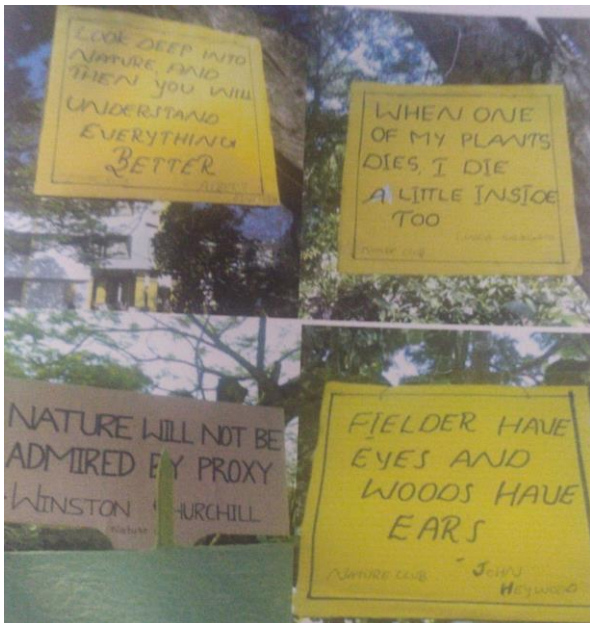 LOOK DEEP INTO
NATURE, AND
THEN YOU WILL
UNDERSTAND
EVERYTHING
BETTER
ALBERT
WHEN ONE
OF MY PLANTS
DIES, I DIE
A LITTLE INSIDE
TOO
NATURE CLUB
NATURE WILL NOT BE
ADMIRED BY PROXY
-WINSTON CHURCHILL
Nature
FIELDER HAVE
EYES AND
WOODS HAVE
EARS
- JOHN
NATURE CLUB
HEYWOOD